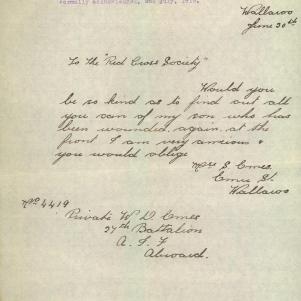 formally acknowledged, 2nd July, 1918.
Wallaroo
June 30th
To the "Red Cross Society"
Would you
be so kind as to find out all
you can of my son who has
been wounded again at the
front I am very anxious &
you would oblige
Mrs S
Wallaroo
No 4419
Private W D
27th Battalion
A. I. F
Abroad.